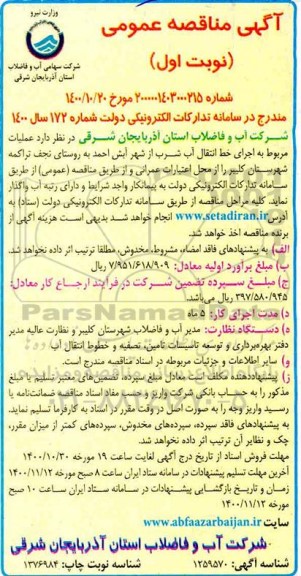 آگهی مناقصه عمومی
(نوبت اول)
وزارت نیرو
شرکت سهامی آب و فاضلاب
استان آذربایجان شرقی
شماره ۲۰۰۰۰۰۱۴۰۳۰۰۰۲۱۵ مورخ ۱۴۰۰/۱۰/۲۰
مندرج در سامانه تدارکات الکترونیکی دولت شماره ۱۷۲ سال ۱۴۰۰
شرکت آب و فاضلاب استان آذربایجان شرقی در نظر دارد عملیات
مربوط به اجرای خط انتقال آب شرب از شهر آبش احمد به روستای نجف تراکمه
شهرستان کلیبر را از محل اعتبارات عمرانی و از طریق مناقصه (عمومی) از طریق
سامانه تدارکات الکترونیکی دولت به پیمانکار واجد شرایط و دارای رتبه آب واگذار
نماید. کلیه مراحل مناقصه از طریق سامانه تدارکات الکترونیکی دولت (ستاد) به
آدرس www.setadiran.ir انجام خواهد شد بدیهی است هزینه آگهی از
برنده مناقصه اخذ خواهد شد.
الف) به پیشنهادهای فاقد امضاء، مشروط، مخدوش، مطلقا ترتیب اثر داده نخواهد شد.
ب) مبلغ برآورد اولیه معادل: ۷/۹۵۱/۶۱۸/۹۰۹ ریال
ج) مبلغ سپرده تضمین شرکت در فرآیند ارجاع کار معادل:
۳۹۷/۵۸۰/۹۴۵ ریال می‌باشد.
د) مدت اجرای کار: ۵ ماه
ه) دستگاه نظارت: مدیر آب و فاضلاب شهرستان کلیبر و نظارت عالیه مدیر
دفتر بهره‌برداری و توسعه تاسیسات تامین، تصفیه و خطوط انتقال آب
و) سایر اطلاعات و جزئیات مربوطه در اسناد مناقصه مندرج است.
ز) پیشنهاددهنده مکلف است معادل مبلغ سپرده، تضمین‌های معتبر تسلیم یا مبلغ
مذکور را به حساب بانکی شرکت واریز و حسب مفاد اسناد مناقصه ضمانت‌نامه یا
رسید واریز وجه را به صورت اصل در وقت مقرر در اسناد به کارفرما تسلیم نماید.
به پیشنهادهای فاقد سپرده، سپرده‌های مخدوش، سپرده‌های کمتر از میزان مقرر،
چک و نظایر آن ترتیب اثر داده نخواهد شد.
مهلت فروش اسناد از تاریخ درج آگهی لغایت ساعت ۱۹ مورخه ۱۴۰۰/۱۰/۳۰
آخرین مهلت تسلیم پیشنهادات در سامانه ستاد ایران ساعت ۸ صبح مورخه ۱۴۰۰/۱۱/۱۲
زمان و تاریخ بازگشایی پیشنهادات در سامانه ستاد ایران ساعت ۱۰ صبح
مورخه ۱۴۰۰/۱۱/۱۲
سایت www.abfaazarbaijan.ir
شرکت آب و فاضلاب استان آذربایجان شرقی
شناسه آگهی: ۱۲۵۹۵۷۰ شناسه نوبت چاپ: ۱۳۷۶۹۸۴